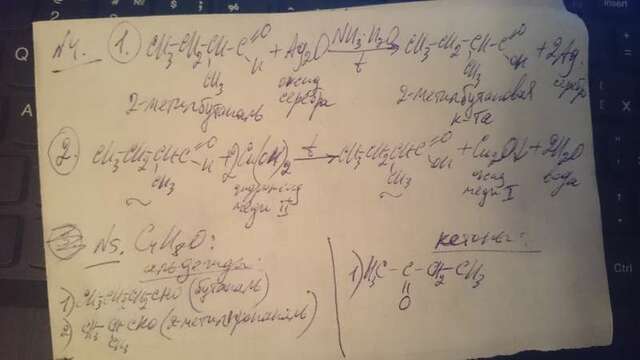 N4. 1. CH3-CH2-CH-C=O H + Ag2O NH3·H2O t → CH3-CH2-CH-C=O OH + 2Ag
CH3 оксид серебра CH3 серебро
2-метилбутаналь 2-метилбутановая к-та
2. CH3-CH2-CH-C=O H + 2Cu(OH)2 t → CH3-CH2-CH-C=O OH + Cu2O + 2H2O
CH3 гидроксид меди II CH3 оксид меди I вода
N5. C4H8O:
альдегиды:
1) CH3-CH2-CH2-CHO (бутаналь)
2) CH3-CH-CHO (2-метилпропаналь)
CH3
кетоны:
1) H3C-C-CH2-CH3
O
Q
A
Ctrl